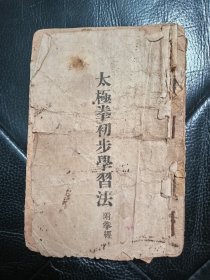 太極拳初步學習法
附拳經